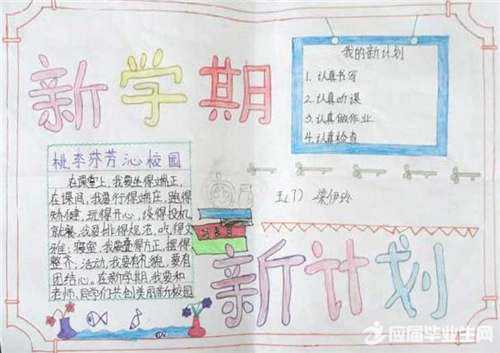 新学期
我的新计划
1.认真书写
2.认真听课
3.认真做作业
4.认真检查
桃李芬芳沁校园
在课堂上,我要坐得端正,
在课间,我要行得端庄,跑得
矫健,玩得开心,谈得投机
就餐,我要排得规范,吃得文
雅,寝室,我要叠得方正,摆得
整齐,活动,我要有礼貌,要有
团结心。在新学期,我要和
老师,同学们共创美丽的校园
新计划
应届毕业生网